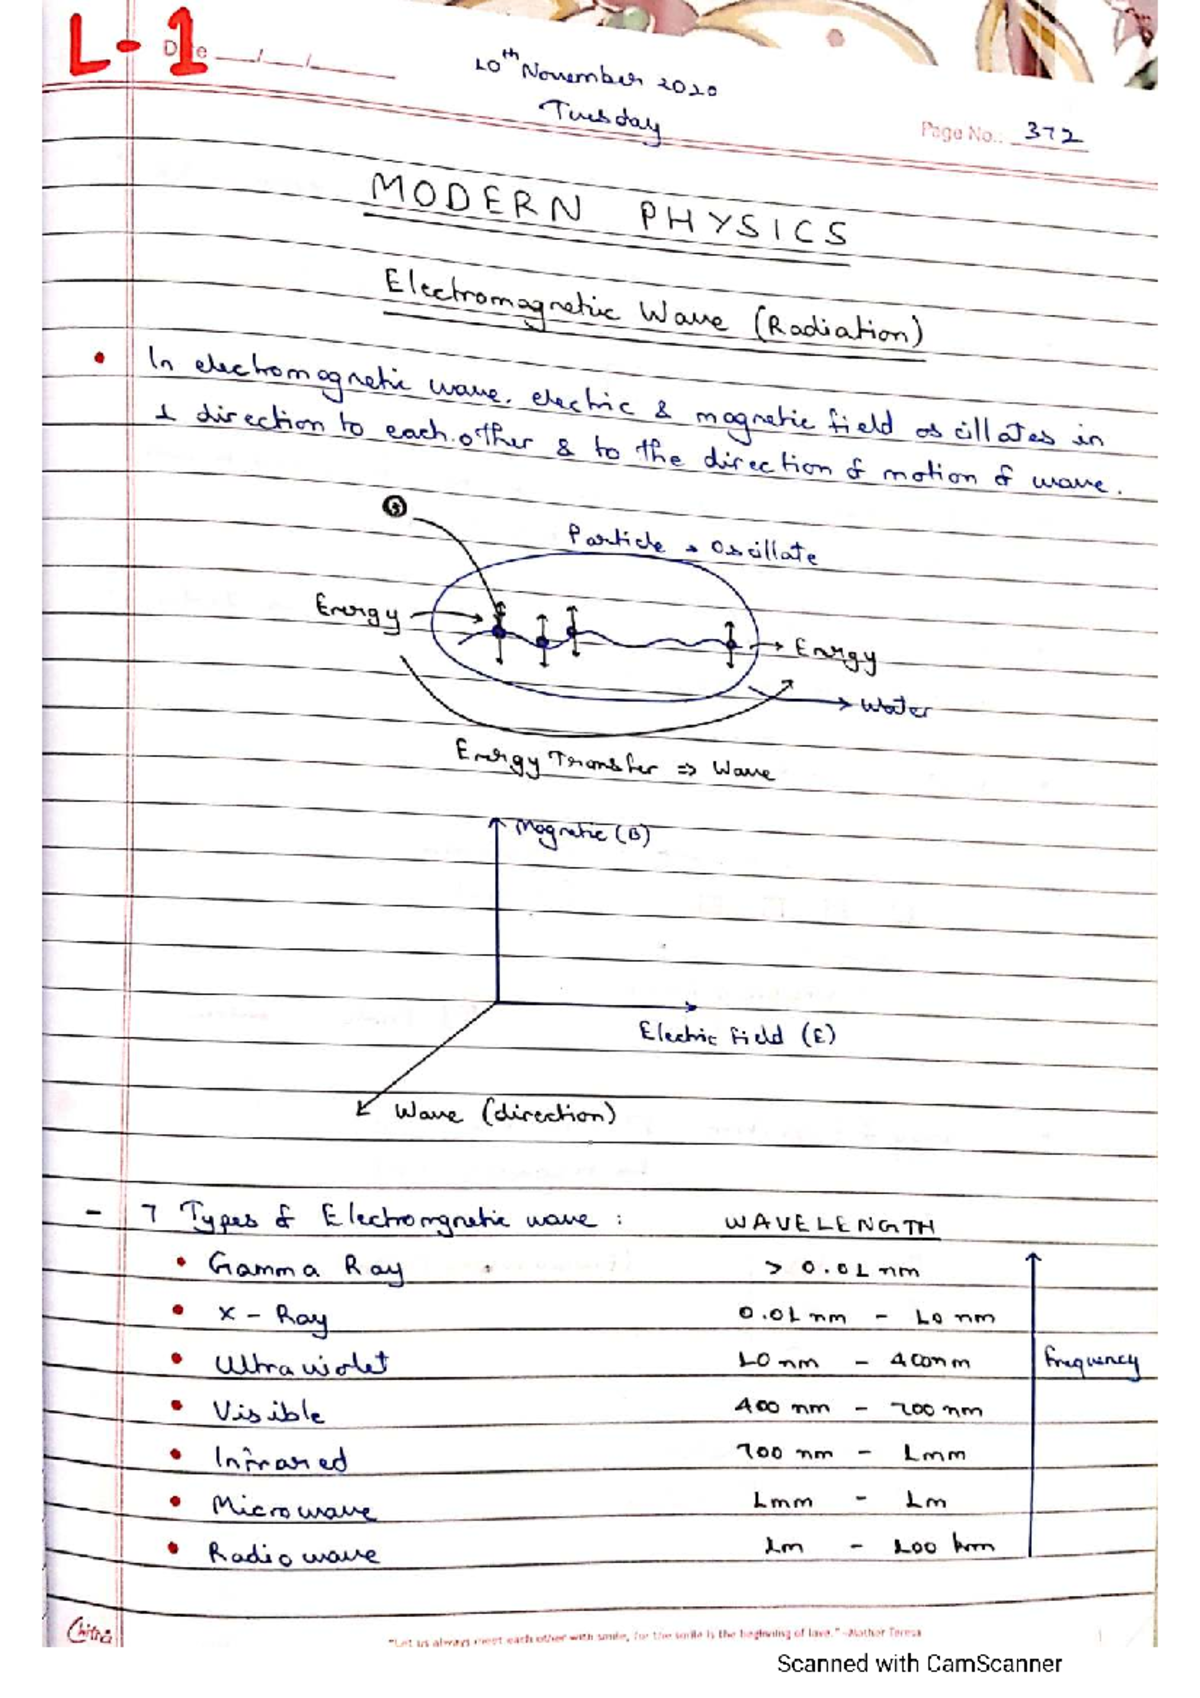 L-1
Date __/__/____
10th November 2020
Tuesday
Page No.: 372
MODERN PHYSICS
Electromagnetic Wave (Radiation)
• In electromagnetic wave, electric & magnetic field oscillates in
⊥ direction to each other & to the direction of motion of wave.
Particle → Oscillate
Energy
Energy
Water
Energy Transfer ⇒ Wave
Magnetic (B)
Electric Field (E)
Wave (direction)
- 7 Types of Electromgnetic wave : WAVELENGTH
• Gamma Ray > 0.01 nm
• X - Ray 0.01 nm - 10 nm
• Ultraviolet 10 nm - 400nm
Frequency
• Visible 400 nm - 700 nm
• Infrared 700 nm - 1mm
• Microwave 1mm - 1m
• Radiowave 1m - 100 km
Chitra
"Let us always meet each other with smile, for the smile is the beginning of love." -Mother Teresa
Scanned with CamScanner